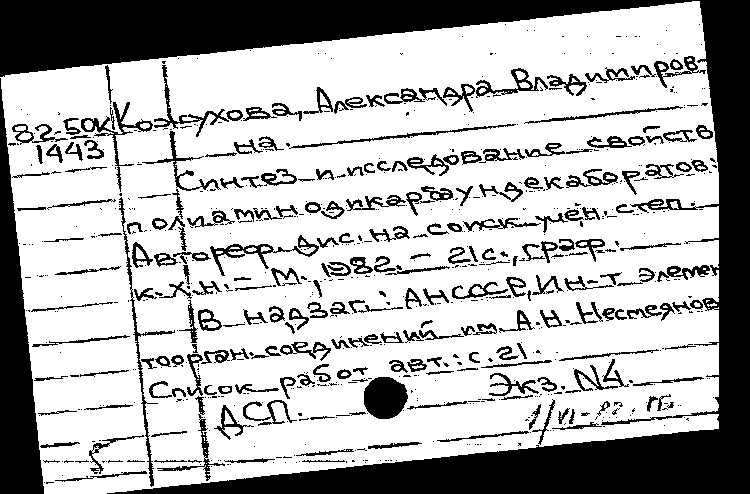 82-50К Кожухова, Александра Владимиров-
1443 на.
Синтез и исследование свойств
полиаминодикарбаундекаборатов:
Автореф. дис. на соиск. учен. степ.
к. х. н. – М., 1982. – 21 с., граф.
В надзаг.: АН СССР, Ин-т элемен
тоорган. соединений им. А.Н. Несмеянов
Список работ авт.: с. 21.
ДСП. Экз. N4.